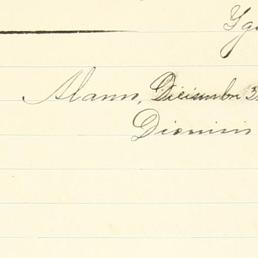 Yg
Alamo, Diciembre 3
Dionisi